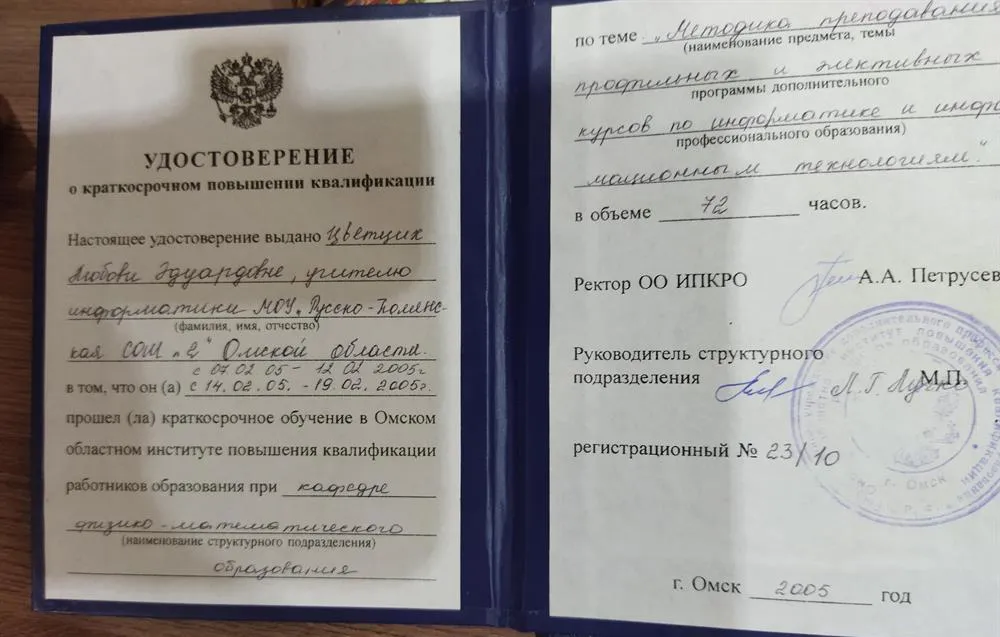 УДОСТОВЕРЕНИЕ
о краткосрочном повышении квалификации
Настоящее удостоверение выдано Цветцих
Любови Эдуардовне, учителю
информатики МОУ „Русско-Полянс-
(фамилия, имя, отчество)
кая СОШ „2" Омской области.
с 07.02 05 - 12 02 2005г
в том, что он (а) с 14.02.05. - 19.02. 2005г.
прошел (ла) краткосрочное обучение в Омском
областном институте повышения квалификации
работников образования при кафедре
физико-математического
(наименование структурного подразделения)
образования
по теме „Методика преподавания
(наименование предмета, темы
профильных и элективных
программы дополнительного
курсов по информатике и инфор
профессионального образования)
мационным технологиям."
в объеме 72 часов.
Ректор ОО ИПКРО А.А. Петрусев
Руководитель структурного
подразделения М.П.
регистрационный № 23/10
г. Омск
г. Омск 2005 год